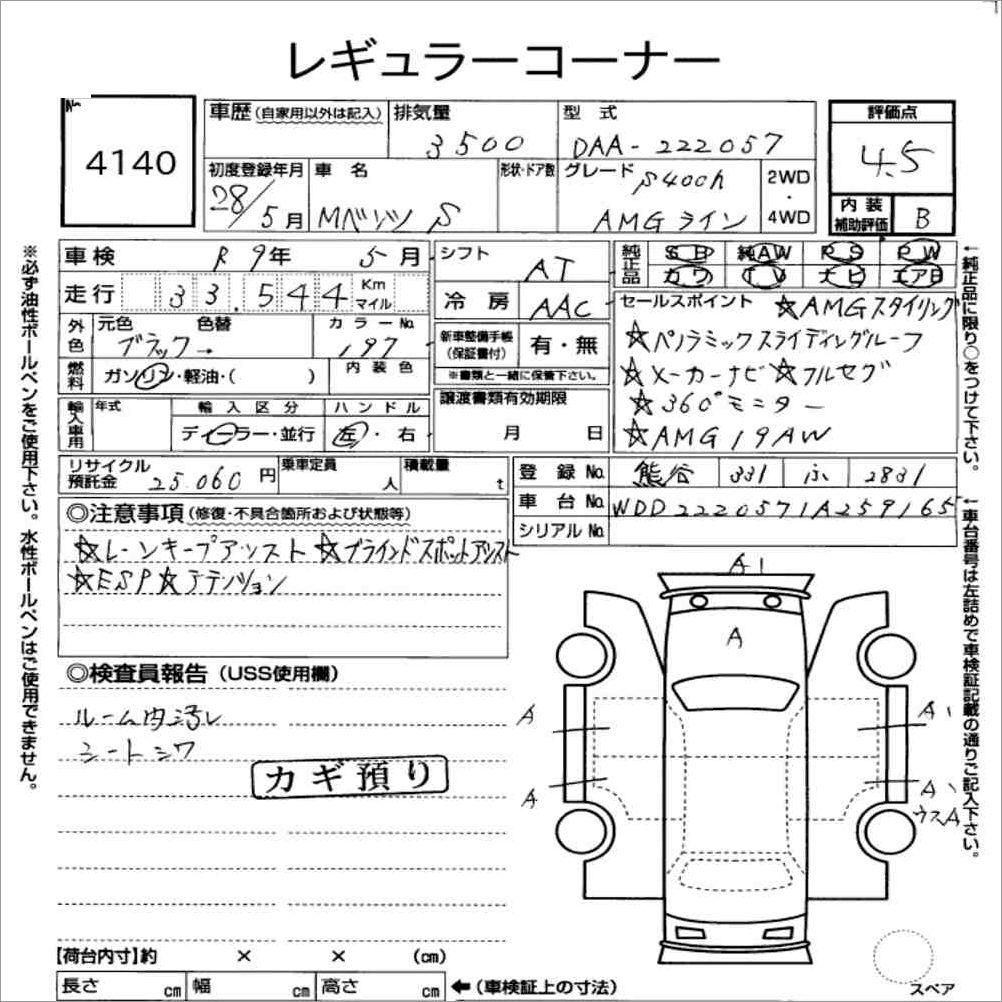 レギュラーコーナー
No.
4140
車歴(自家用以外は記入)
排気量
3500
型式
DAA-222057
評価点
4.5
初度登録年月
28/5月
車名
Mベンツ S
形状・ドア数
グレード
S400h
AMGライン
2WD
・
4WD
内装
補助評価
B
車検
R 9年 5月
シフト
AT
純正品
SD 純AW PS PW
カワ TV ナビ エアB
走行
33,544
Km
マイル
冷房
AAC
セールスポイント ☆AMGスタイリング
☆パノラミックスライディングルーフ
☆メーカーナビ☆フルセグ
☆360°モニター
☆AMG19AW
外色
元色 色替
ブラック→
カラーNo.
197
新車整備手帳
(保証書付)
有・無
※書類と一緒に保管下さい。
燃料
ガソリン・軽油・( )
内装色
譲渡書類有効期限
月 日
輸入車用
年式
輸入区分
ディーラー・並行
ハンドル
左・右
リサイクル
預託金
25.060円
乗車定員
人
積載量
t
登録No.
熊谷 331 ふ 2831
車台No.
WDD2220571A259165
シリアルNo.
◎注意事項(修復・不具合箇所および状態等)
☆レーンキープアシスト ☆ブラインドスポットアシスト
☆ESP☆アテンション
◎検査員報告(USS使用欄)
ルーム内汚レ
シートシワ
カギ預り
A1
A
A
A
A
A
ウスA
【荷台内寸】約 × × (cm)
長さ cm 幅 cm 高さ cm
←(車検証上の寸法)
スペア
※必ず油性ボールペンをご使用下さい。水性ボールペンはご使用できません。
←純正品に限り○をつけて下さい。
←車台番号は左詰めで車検証記載の通りご記入下さい。